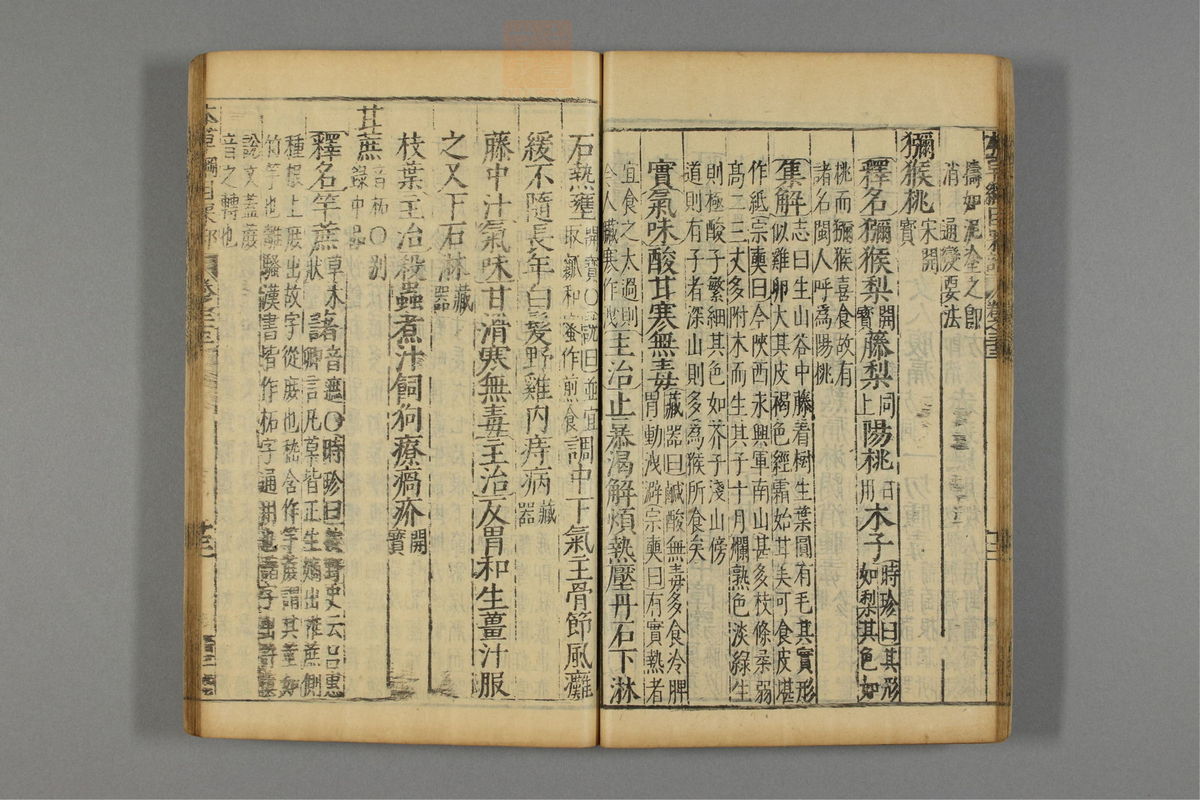 擣如泥塗之即
消 通變要法
獼猴桃宋開
寶
釋名獼猴梨開
寶藤梨同
上陽桃日
用木子時珍曰其形
如梨其色如
桃而獼猴喜食故有
諸名閩人呼為陽桃
集解志曰生山谷中藤着樹生葉圓有毛其實形
似雞卵大其皮褐色經霜始甘美可食皮堪
作紙宗奭曰今陝西永興軍南山甚多枝條柔弱
高二三丈多附木而生其子十月爛熟色淡綠生
則極酸子繁細其色如芥子淺山傍
道則有子者深山則多為猴所食矣
實氣味酸甘寒無毒藏器曰鹹酸無毒多食冷脾
胃動洩澼宗奭曰有實熱者
宜食之太過則
令人臟寒作洩主治止暴渴解煩熱壓丹石下淋
石熱壅開寶○詵曰並宜
取瓤和蜜作煎食調中下氣主骨節風癱
緩不隨長年白髮野雞內痔病藏
器
藤中汁氣味甘滑寒無毒主治反胃和生薑汁服
之又下石淋藏
器
枝葉主治殺蟲煮汁飼狗療瘑疥開
寶
甘蔗音柘○別
錄中品
釋名竿蔗草木
狀藷音遮○時珍曰
野史云呂惠
卿言凡草皆正生嫡出惟蔗側
種根上庶出故字從庶也嵇含作竿蔗謂其莖如
竹竿也離騷漢書皆作柘字通用也藷字出
說文蓋蔗
音之轉也